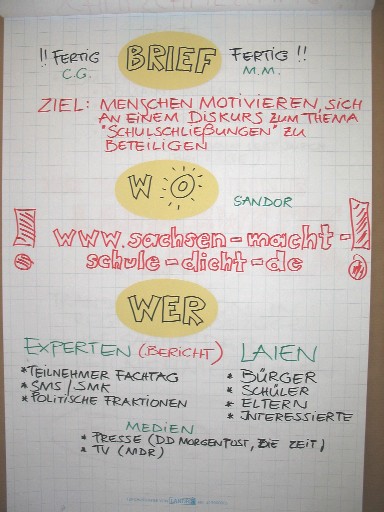 !! FERTIG BRIEF FERTIG !!
C.G. M.M.
ZIEL: MENSCHEN MOTIVIEREN, SICH
AN EINEM DISKURS ZUM THEMA
"SCHULSCHLIEßUNGEN" ZU
BETEILIGEN
WO
SANDOR
! www.sachsen-macht- !
schule-dicht-de
WER
EXPERTEN (BERICHT) LAIEN
* TEILNEHMER FACHTAG
* SMS / SMK
* POLITISCHE FRAKTIONEN
* BÜRGER
* SCHÜLER
* ELTERN
* INTERESSIERTE
MEDIEN
* PRESSE (DD MORGENPOST, DIE ZEIT)
* TV (MDR)